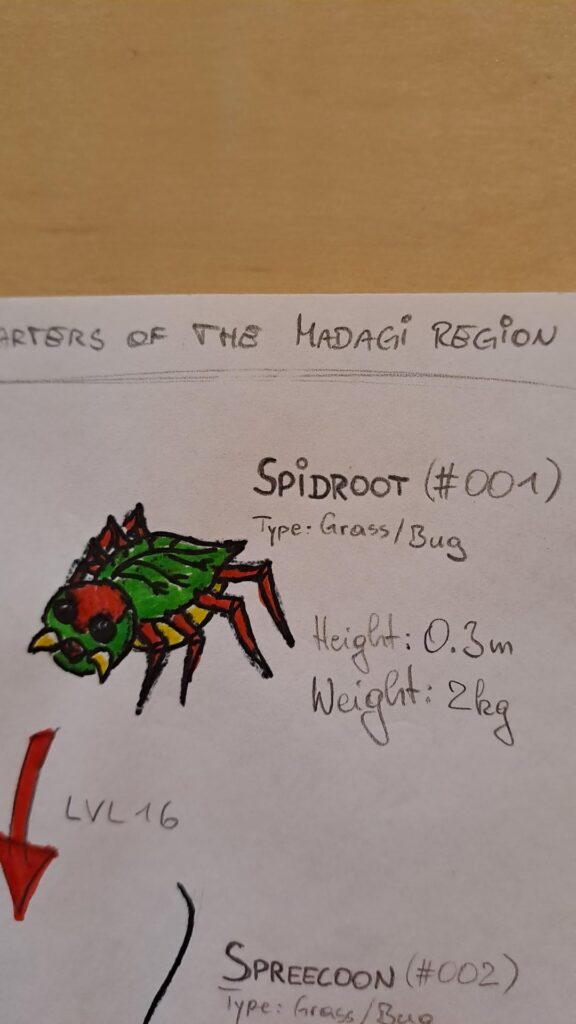 ARTERS OF THE MADAGI REGION
SPIDROOT (#001)
Type: Grass/Bug
Height: 0.3m
Weight: 2kg
LVL 16
SPREECOON (#002)
Type: Grass/Bug